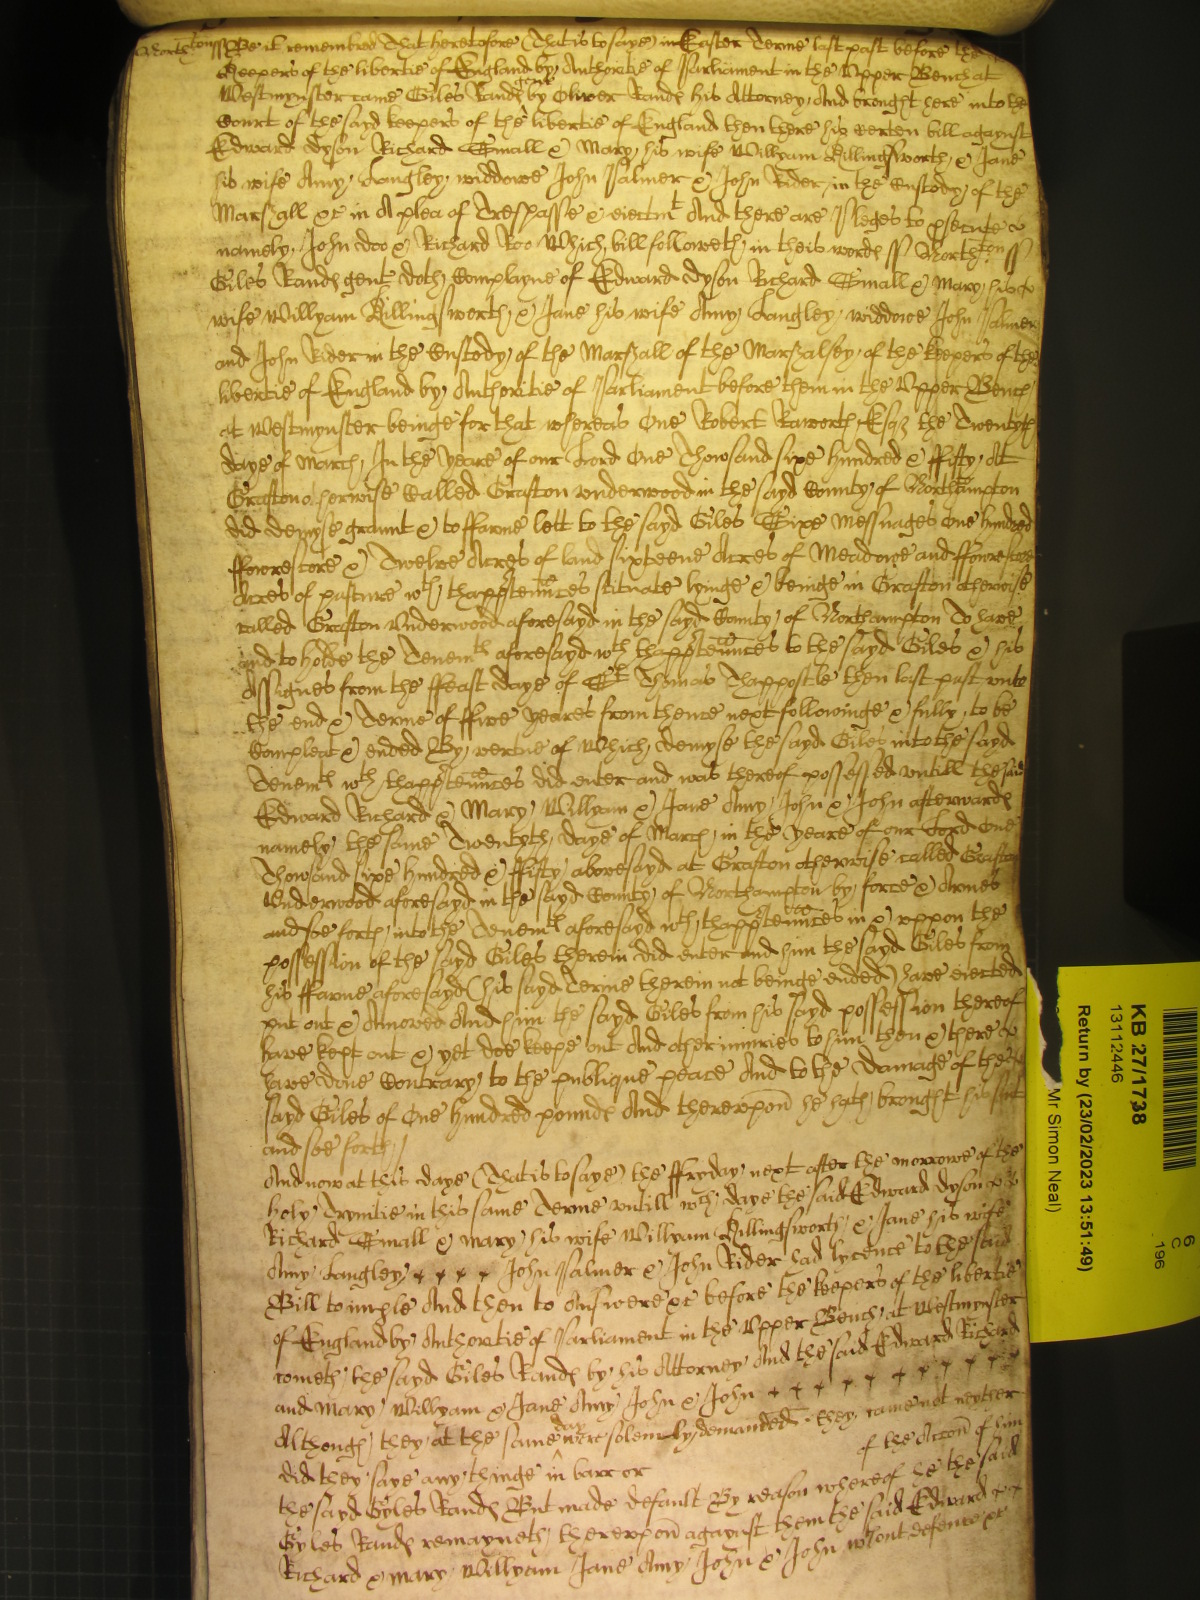 Northton ss Be it remembred That heretofore (That is to saye) in Easter Terme last past before the
Keepers of the libertie of England by Authoritie of Parliament in the Upper Bench at
Westmynster came Giles Rands gent by Oliver Rands his Attorney, And brought here into the
Court of the sayd keepers of the libertie of England then there his certen bill agaynst
Edward Dyson Richard Small & Mary his wife Willyam Billingsworth & Jane
his wife Amy Langley widdowe John Palmer & John Rider in the Custody of the
Marshall &c in A plea of Trespasse & eiectmt And there are Pleges to psecute &
namely John Doo & Richard Roo Which bill followeth in theis words ss Northton ss
Giles Rands gent doth Complayne of Edward Dyson Richard Small & Mary his
wife Willyam Billingsworth & Jane his wife Amy Langley widdowe John Palmer
and John Rider in the Custody of the Marshall of the Marshalsey of the keepers of the
libertie of England by Authoritie of Parliament before them in the Upper Bench
at Westmynster beinge for that whereas One Robert Raworth Esqr the Twentyth
daye of March In the yeare of our Lord One Thowsand sixe hundred & ffifty At
Grafton otherwise Called Grafton Underwood in the sayd County of Northampton
did demyse graunt & to ffarme lett to the sayd Giles Sixe Messuages One hundred
ffowrescore & Twelve Acres of land sixteene Acres of Meadowe and ffowrescore
Acres of pasture wth thapptennces scituate lyinge & beinge in Grafton otherwise
called Grafton Underwood aforesayd in the sayd County of Northampton To have
and to holde the Tenemts aforesayd wth thapptennces to the sayd Giles & his
Assignes from the ffeast daye of St Thomas Thappostle then last past unto
the end & Terme of ffive yeares from thence next followinge & fully to be
Compleat & ended By vertue of Which demyse the sayd Giles into the sayd
Tenemts wth thapptennces did enter and was thereof possessed untill the said
Edward Richard & Mary Willyam & Jane Amy John & John afterwards
namely the same Twentyth daye of March in the yeare of our Lord One
Thowsand Sixe hundred & ffifty abovesayd at Grafton otherwise called Grafton
Underwood aforesayd in the sayd County of Northampton by force & Armes
and soe forth into the Tenemts aforesayd wth thapptennces in & uppon the
possession of the sayd Giles therein did enter and him the sayd Giles from
his ffarme aforesayd (his sayd Terme therein not beinge ended) have eiected
put out & Amoved And him the sayd Giles from his sayd possession thereof
have kept out & yet doe keepe out And other iniuries to him then & there
have done Contrary to the publique peace And to the Damage of the
sayd Giles of One hundred pounds And thereupon he hath brought his suit
and soe forth
And now at this daye (That is to saye) the ffryday next after the morrowe of the
holy Trynitie in this same Terme untill wch daye the said Edward Dyson
Richard Small & Mary his wife Willyam Billingsworth & Jane his wife
Amy Langley John Palmer & John Rider had lycence to the said
Bill to imple And then to Answere &c before the keepers of the libertie
of England by Authoritie of Parliament in the Upper Bench at Westmynster
cometh the sayd Giles Rands by his Attorney And the said Edward Richard
and Mary Willyam & Jane Amy John & John
Although they at the same day were solemly demanded they came not neyther
did they saye any thinge in barr or of the Accon of him
the sayd Gyles Rands But made default By reason whereof he the said
Gyles Rands remayneth thereupon agaynst them the said Edward
Richard & Mary Willyam Jane Amy John & John wthout defence &c
KB 27/1738
13112446
Return by (23/02/2023 13:51:49)
Mr Simon Neal)
6
C
196